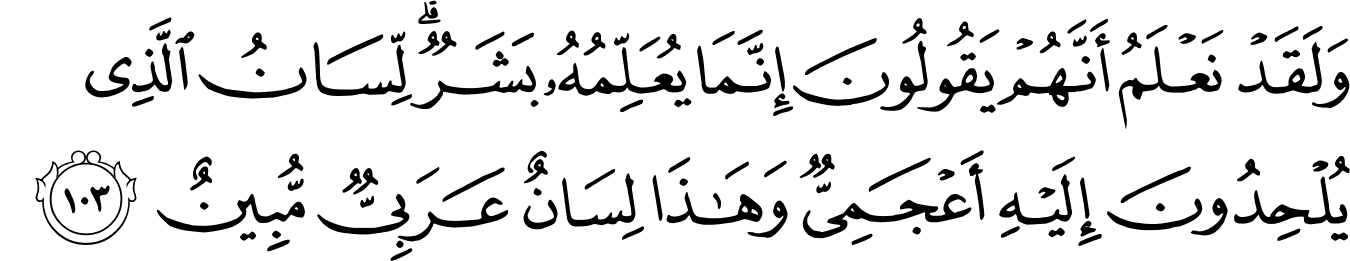 وَلَقَدْ نَعْلَمُ أَنَّهُمْ يَقُولُونَ إِنَّمَا يُعَلِّمُهُۥ بَشَرٌۭ ۗ لِّسَانُ ٱلَّذِى
يُلْحِدُونَ إِلَيْهِ أَعْجَمِىٌّۭ وَهَـٰذَا لِسَانٌ عَرَبِىٌّۭ مُّبِينٌ ١٠٣